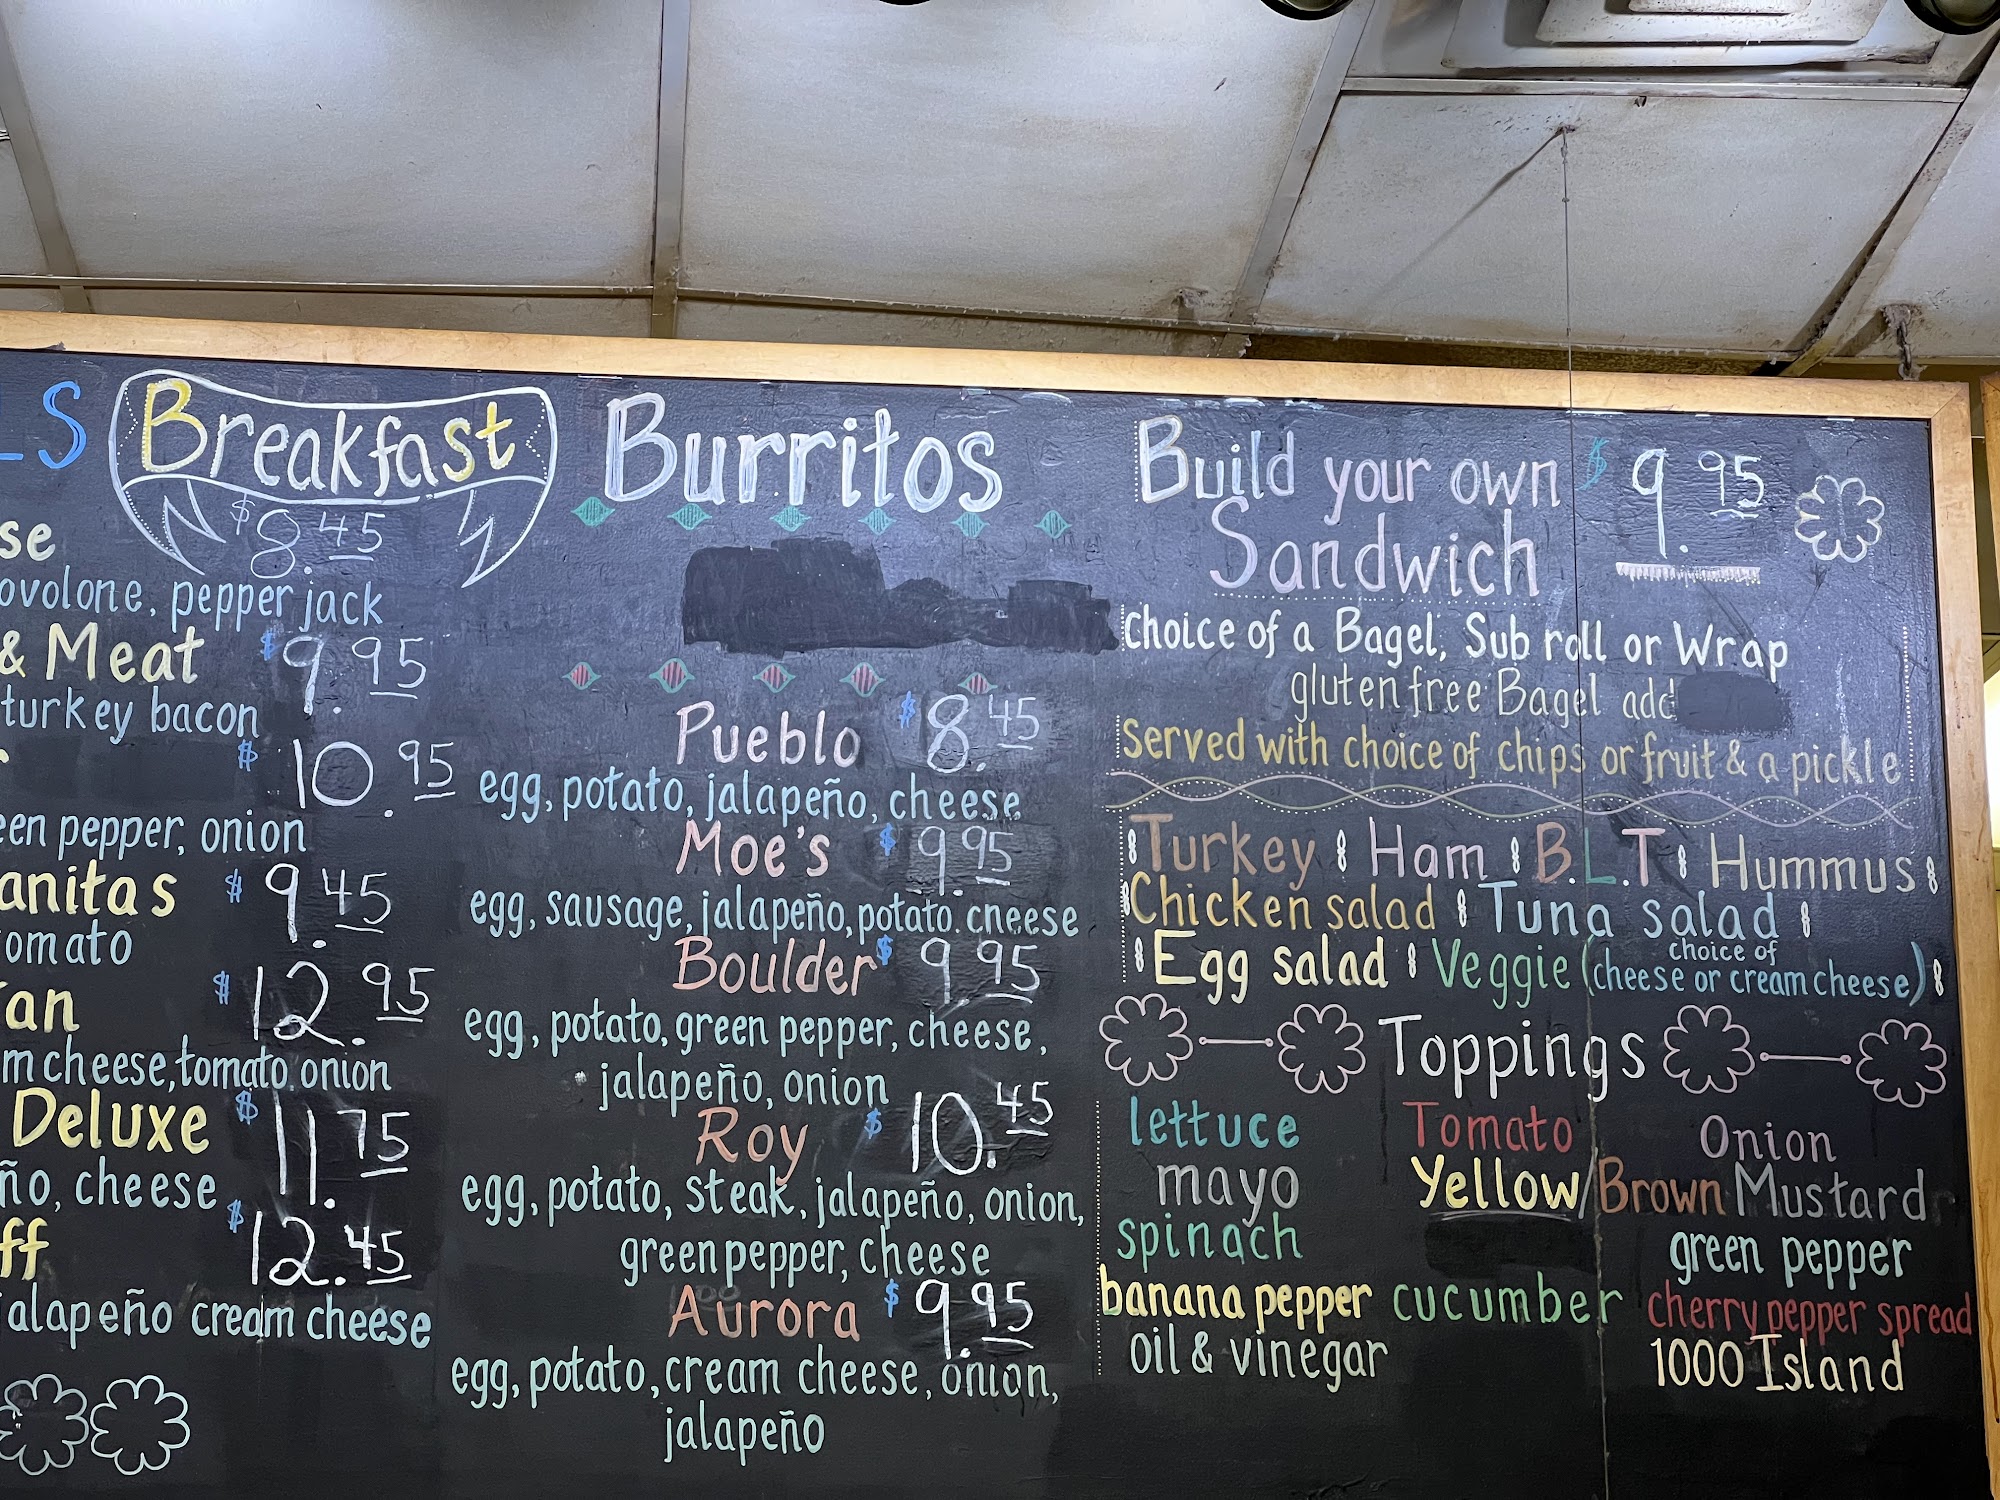 LS
Breakfast
$8.45
se
ovolone, pepper jack
& Meat $9.95
turkey bacon
$10.95
een pepper, onion
anitas $9.45
omato
an $12.95
m cheese, tomato, onion
Deluxe $11.75
ño, cheese
ff $12.45
jalapeño cream cheese
Burritos
Pueblo $8.45
egg, potato, jalapeño, cheese
Moe's $9.95
egg, sausage, jalapeño, potato, cheese
Boulder $9.95
egg, potato, green pepper, cheese,
jalapeño, onion
Roy $10.45
egg, potato, steak, jalapeño, onion,
green pepper, cheese
Aurora $9.95
egg, potato, cream cheese, onion,
jalapeño
Build your own $9.95
Sandwich
choice of a Bagel, Sub roll or Wrap
gluten free Bagel add
Served with choice of chips or fruit & a pickle
Turkey Ham B.L.T Hummus
Chicken salad Tuna salad
Egg salad Veggie (choice of cheese or cream cheese)
Toppings
lettuce Tomato Onion
mayo Yellow/Brown Mustard
spinach green pepper
banana pepper cucumber cherry pepper spread
oil & vinegar 1000 Island